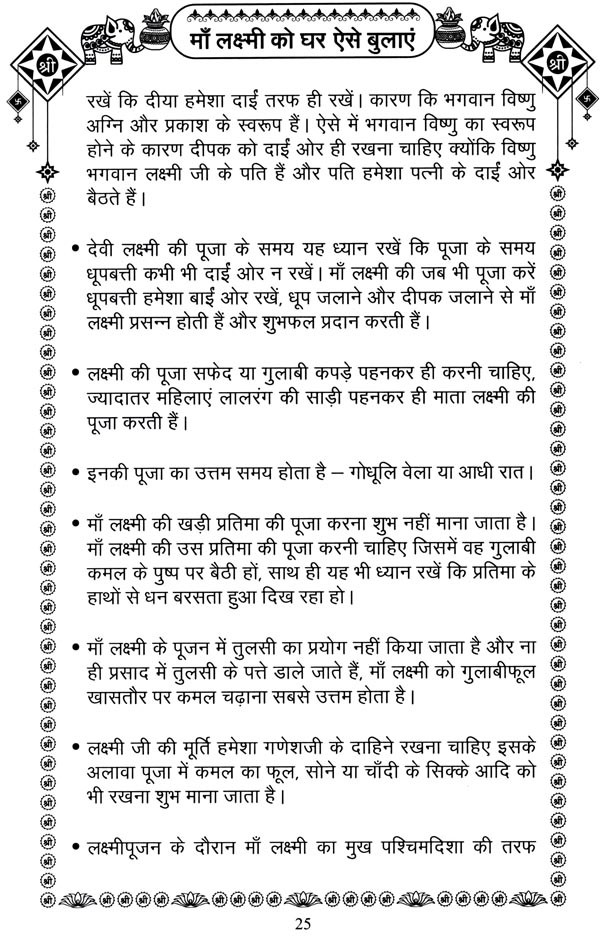 माँ लक्ष्मी को घर ऐसे बुलाएं
श्री
श्री
रखें कि दीया हमेशा दाईं तरफ ही रखें। कारण कि भगवान विष्णु
अग्नि और प्रकाश के स्वरूप हैं। ऐसे में भगवान विष्णु का स्वरूप
होने के कारण दीपक को दाईं ओर ही रखना चाहिए क्योंकि विष्णु
भगवान लक्ष्मी जी के पति हैं और पति हमेशा पत्नी के दाईं ओर
बैठते हैं।
• देवी लक्ष्मी की पूजा के समय यह ध्यान रखें कि पूजा के समय
धूपबत्ती कभी भी दाईं ओर न रखें। माँ लक्ष्मी की जब भी पूजा करें
धूपबत्ती हमेशा बाईं ओर रखें, धूप जलाने और दीपक जलाने से माँ
लक्ष्मी प्रसन्न होती हैं और शुभफल प्रदान करती हैं।
• लक्ष्मी की पूजा सफेद या गुलाबी कपड़े पहनकर ही करनी चाहिए,
ज्यादातर महिलाएं लालरंग की साड़ी पहनकर ही माता लक्ष्मी की
पूजा करती हैं।
• इनकी पूजा का उत्तम समय होता है – गोधूलि वेला या आधी रात।
• माँ लक्ष्मी की खड़ी प्रतिमा की पूजा करना शुभ नहीं माना जाता है।
माँ लक्ष्मी की उस प्रतिमा की पूजा करनी चाहिए जिसमें वह गुलाबी
कमल के पुष्प पर बैठी हों, साथ ही यह भी ध्यान रखें कि प्रतिमा के
हाथों से धन बरसता हुआ दिख रहा हो।
• माँ लक्ष्मी के पूजन में तुलसी का प्रयोग नहीं किया जाता है और ना
ही प्रसाद में तुलसी के पत्ते डाले जाते हैं, माँ लक्ष्मी को गुलाबीफूल
खासतौर पर कमल चढ़ाना सबसे उत्तम होता है।
• लक्ष्मी जी की मूर्ति हमेशा गणेशजी के दाहिने रखना चाहिए इसके
अलावा पूजा में कमल का फूल, सोने या चाँदी के सिक्के आदि को
भी रखना शुभ माना जाता है।
• लक्ष्मीपूजन के दौरान माँ लक्ष्मी का मुख पश्चिमदिशा की तरफ
25